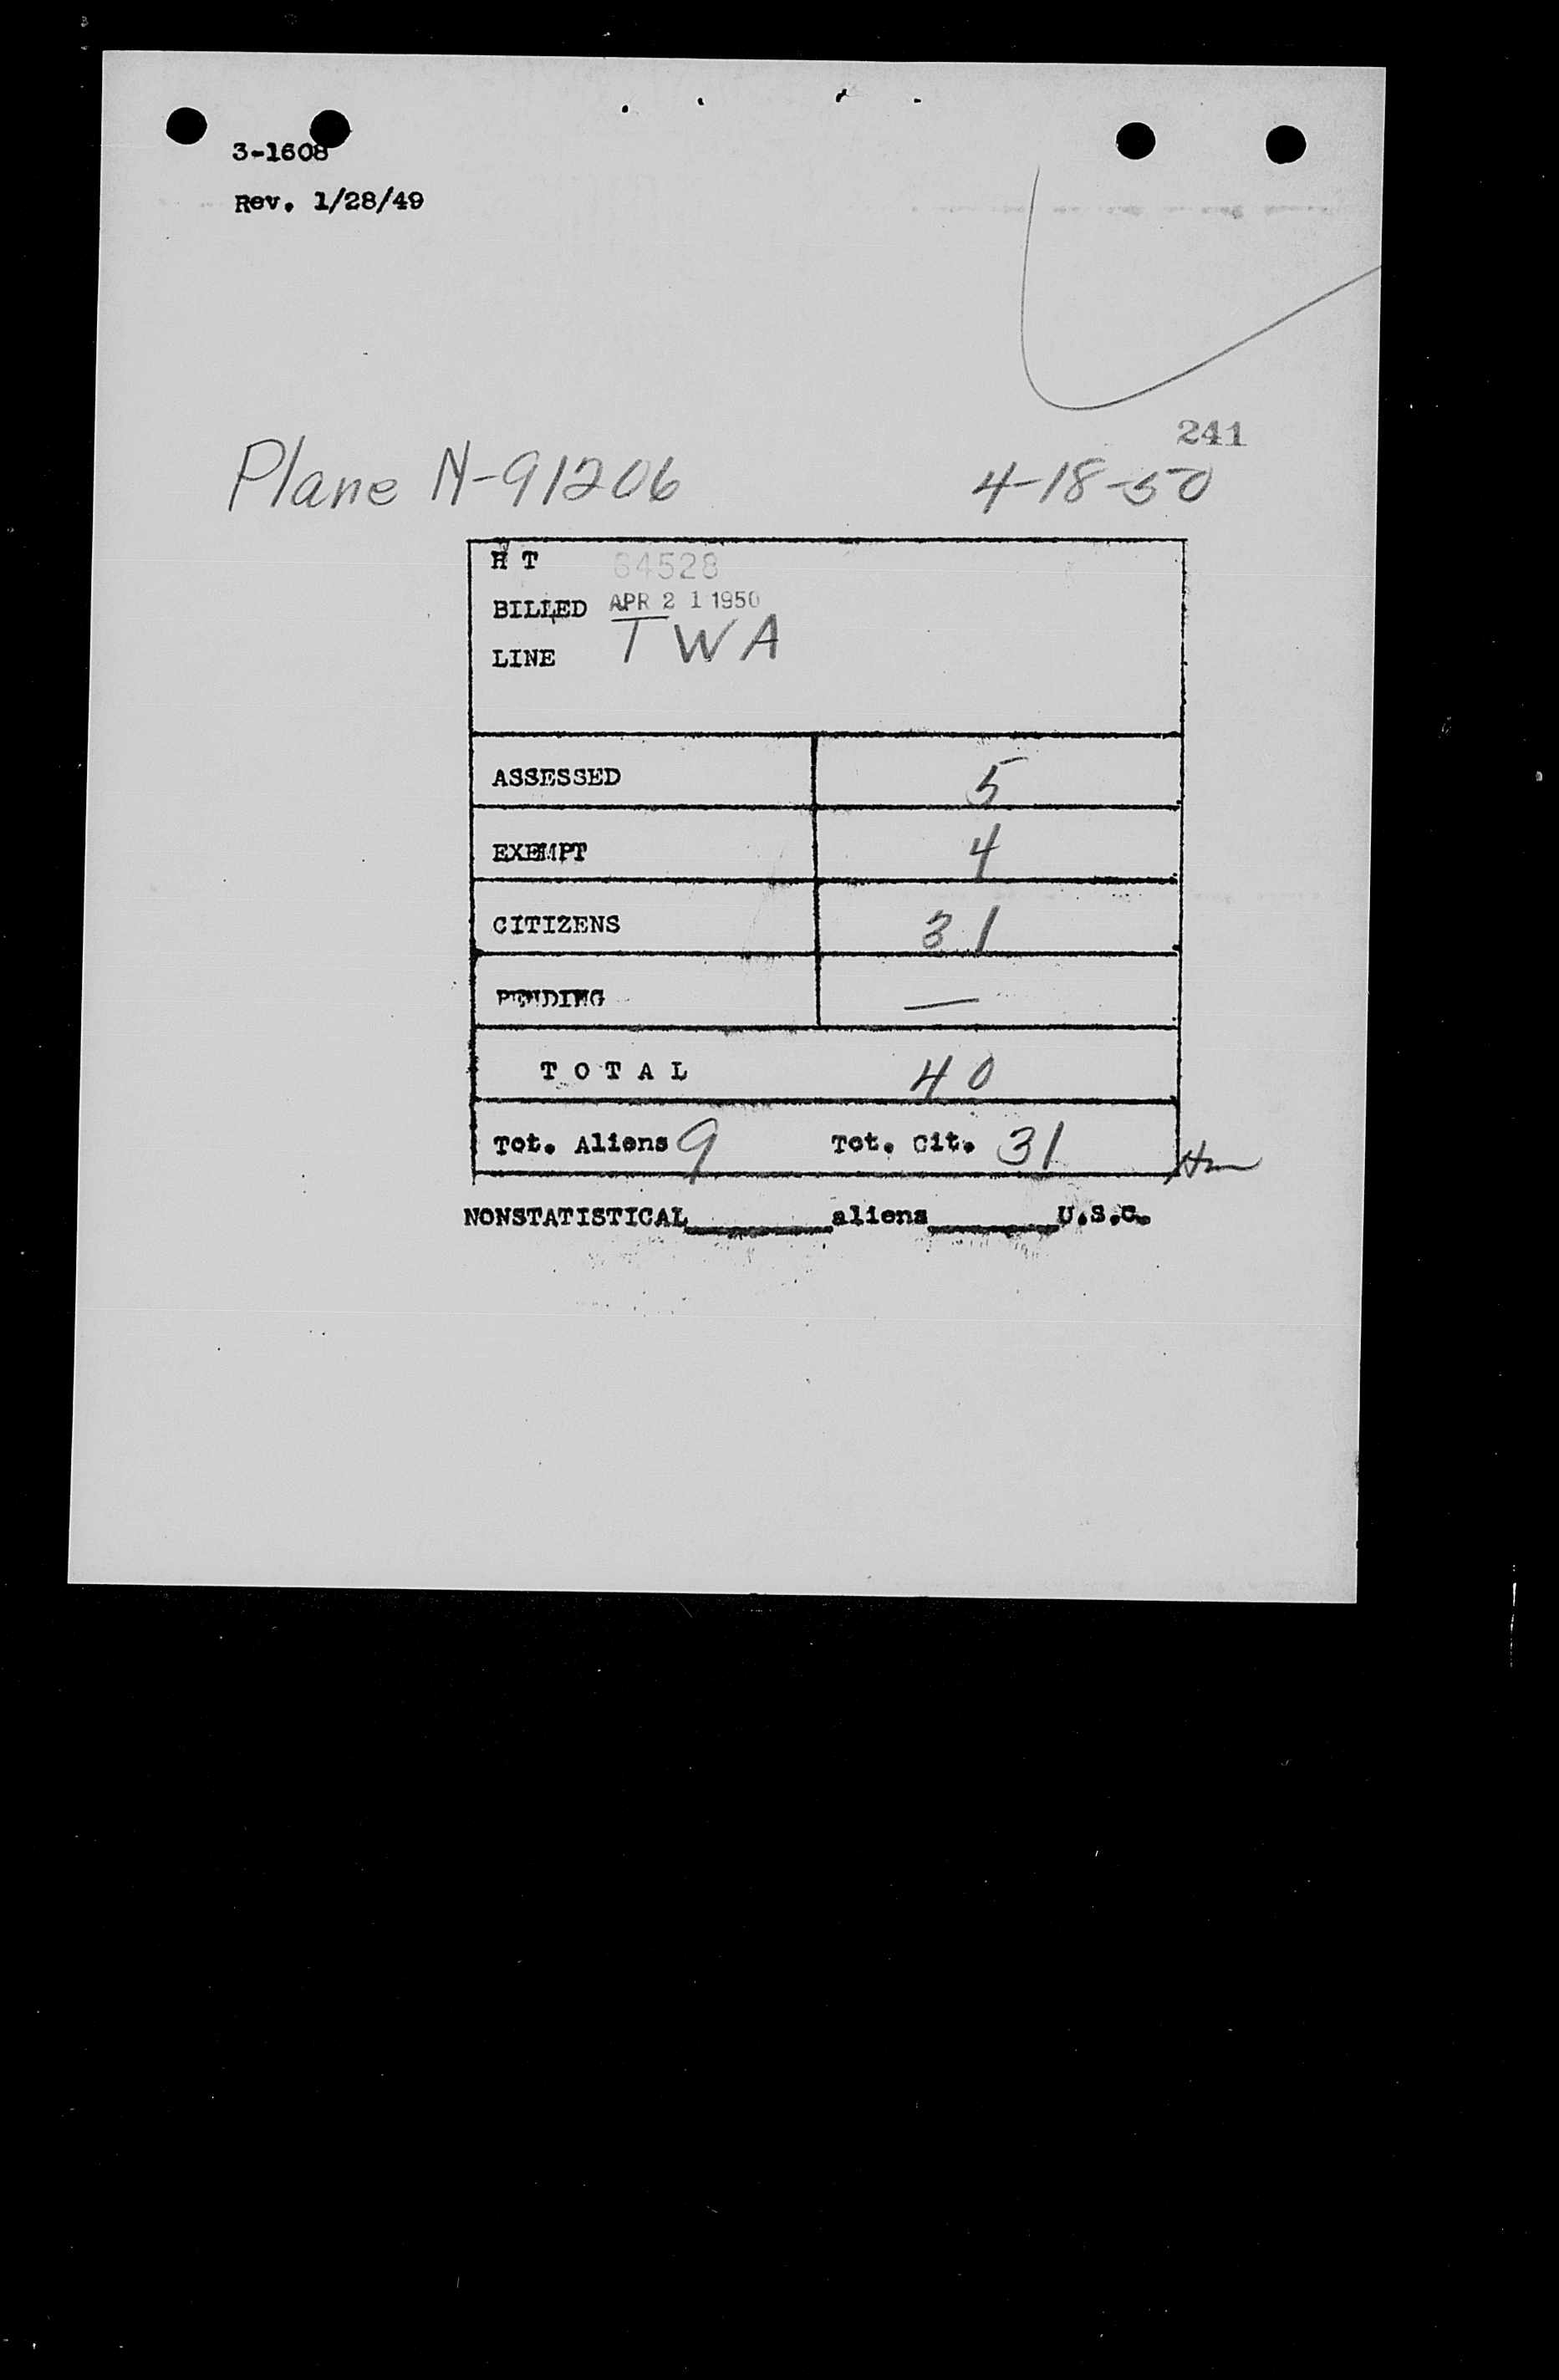 3-1608
Rev. 1/28/49
241
Plane N-91206 4-18-50
H T 64528
BILLED APR 21 1950
LINE TWA
ASSESSED 5
EXEMPT 4
CITIZENS 31
PENDING —
TOTAL 40
Tot. Aliens 9 Tot. Cit. 31
NONSTATISTICAL________aliens________U.S.C.